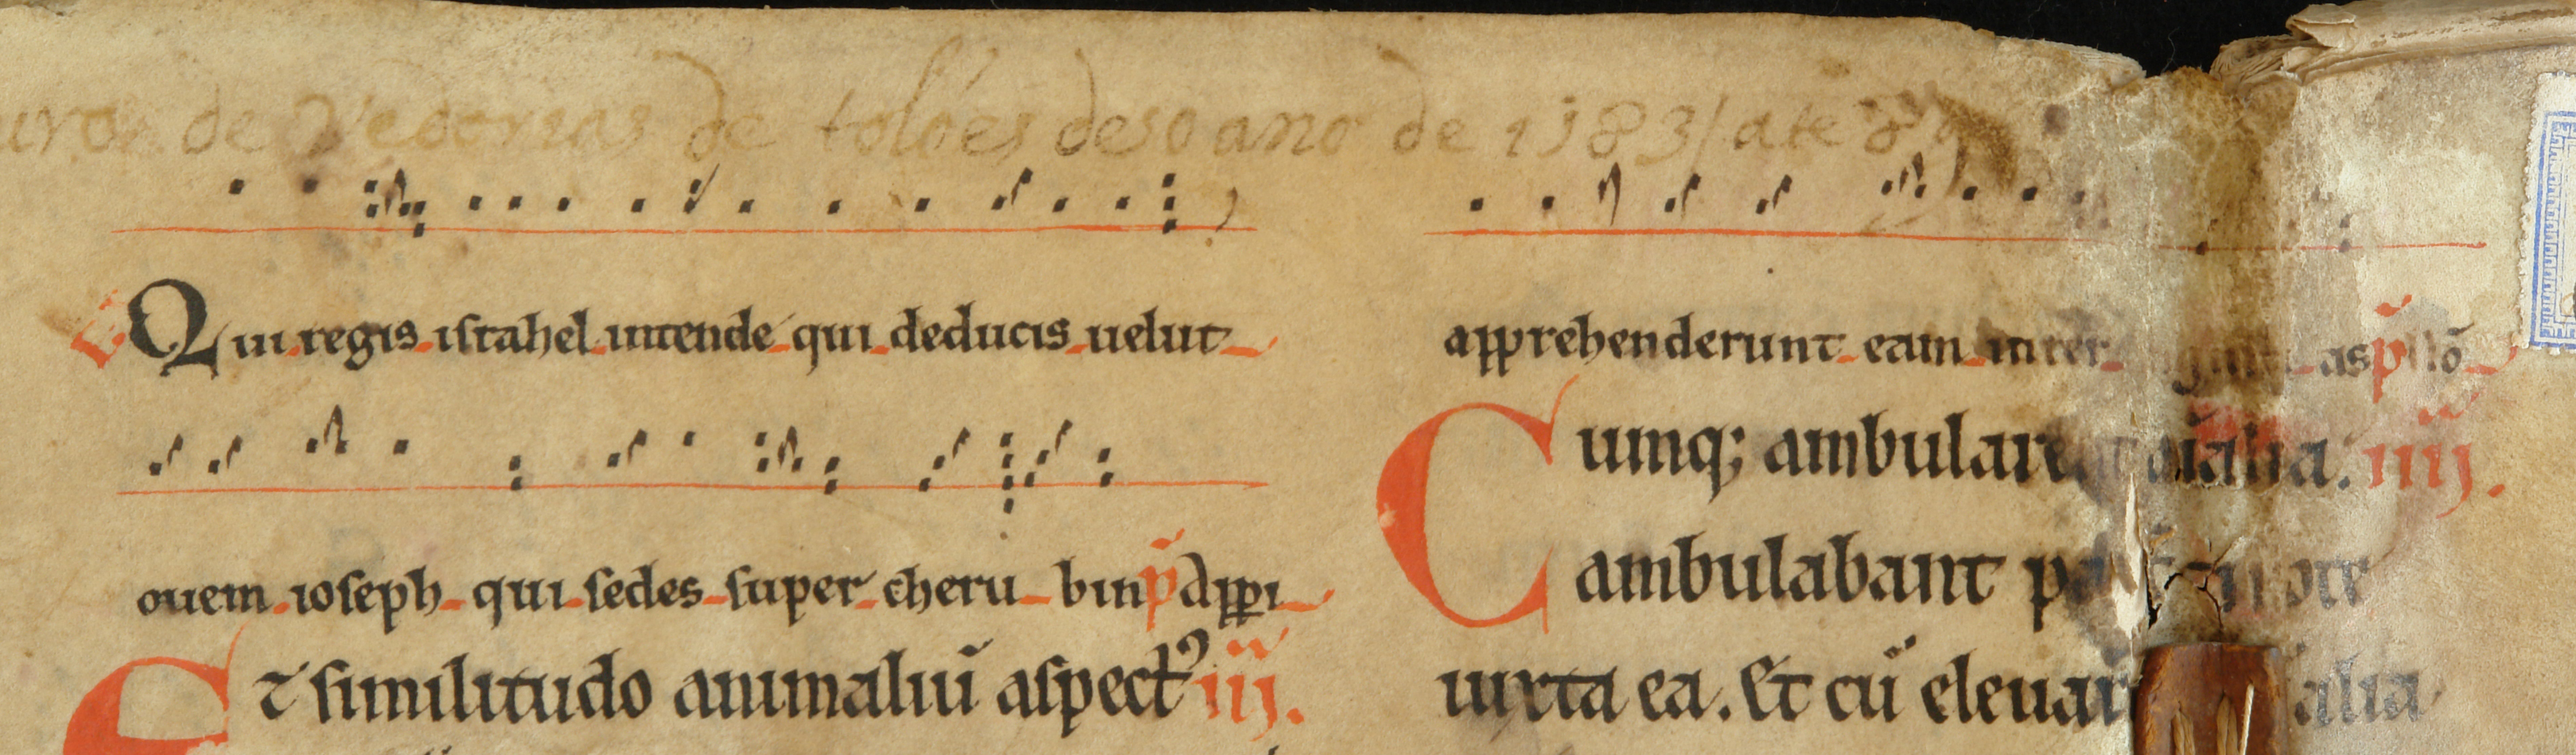 de Vedorias de tolões des o ano de 1583 / ate 8
Qui regis israhel intende qui deducis uelut
ouem ioseph qui sedes super cheru bin p̃ Appi
⁊ similitudo animaliũ aspectꝰ iii.
apprehenderunt eam inter as p̃
Cumq; ambularent aĩalia. iiii.
ambulabant
iuxta ea. Et cũ eleuar alia